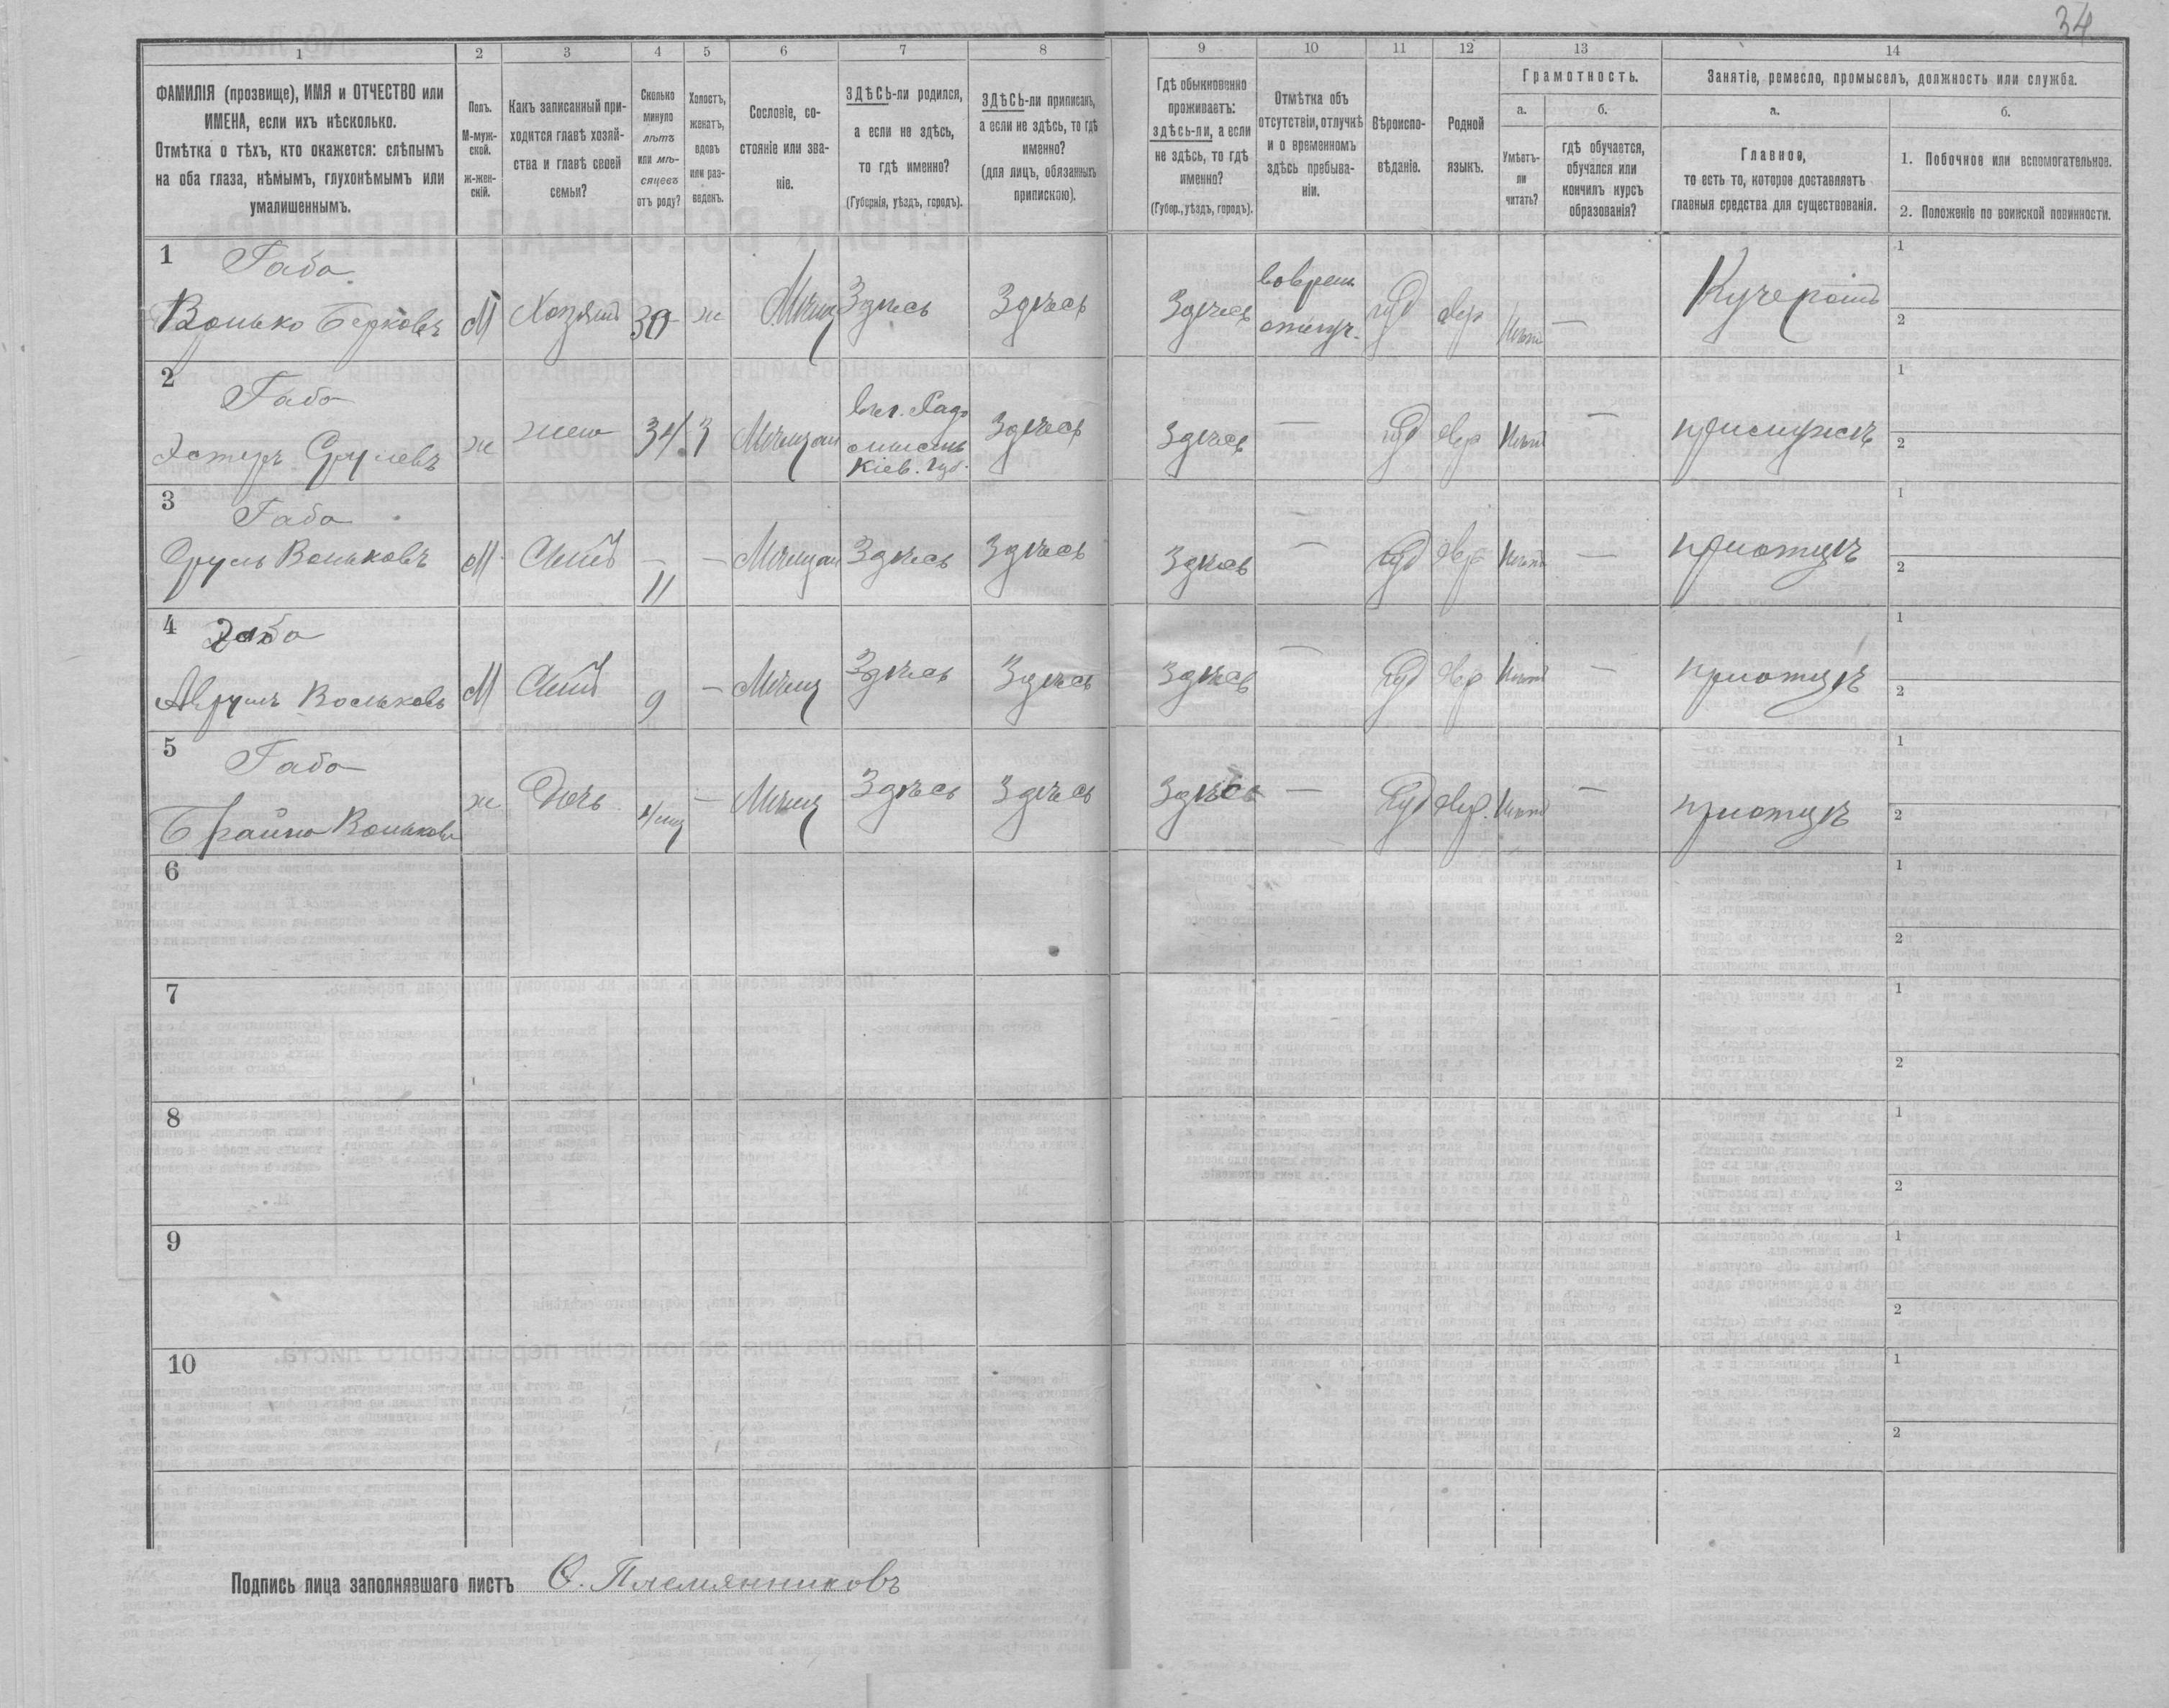 34
1 2 3 4 5 6 7 8 9 10 11 12 13 14
ФАМИЛІЯ (прозвище), ИМЯ и ОТЧЕСТВО или
ИМЕНА, если ихъ нѣсколько.
Отмѣтка о тѣхъ, кто окажется: слѣпымъ
на оба глаза, нѣмымъ, глухонѣмымъ или
умалишеннымъ.
Полъ.
М-муж-
ской.
ж-жен-
скій.
Какъ записанный при-
ходится главѣ хозяй-
ства и главѣ своей
семьи?
Сколько
минуло
лѣтъ
или мѣ-
сяцевъ
отъ роду?
Холостъ,
женатъ,
вдовъ
или раз-
веденъ.
Сословіе, со-
стояніе или зва-
ніе.
ЗДѢСЬ-ли родился,
а если не здѣсь,
то гдѣ именно?
(Губернія, уѣздъ, городъ).
ЗДѢСЬ-ли приписанъ,
а если не здѣсь, то гдѣ
именно?
(для лицъ, обязанныхъ
припискою).
Гдѣ обыкновенно
проживаетъ:
здѣсь-ли, а если
не здѣсь, то гдѣ
именно?
(Губер., уѣздъ, городъ).
Отмѣтка объ
отсутствіи, отлучкѣ
и о временномъ
здѣсь пребыва-
ніи.
Вѣроиспо-
вѣданіе.
Родной
языкъ.
Грамотность.
а.
Умѣетъ-
ли
читать?
б.
гдѣ обучается,
обучался или
кончилъ курсъ
образованія?
Занятіе, ремесло, промыселъ, должность или служба.
а.
Главное,
то есть то, которое доставляетъ
главныя средства для существованія.
б.
1. Побочное или вспомогательное.
2. Положеніе по воинской повинности.
1 Габа
Волько Берковъ М Хозяинъ 30 ж Мѣщ Здѣсь Здѣсь Здѣсь Іуд Евр Кучеромъ
1
2
2 Габа
Эстеръ Срулевъ ж жена 34 З Мѣщан
Кіев. губ.
Здѣсь Здѣсь — Іуд Евр — при мужѣ
1
2
3 Габа
Сруль Вольковъ М Сынъ 11 — Мѣщан Здѣсь Здѣсь Здѣсь — Іуд Евр — при отцѣ
1
2
4 Габа
Аврумъ Вольковъ М Сынъ 9 — Мѣщ Здѣсь Здѣсь Здѣсь — Іуд Евр — при отцѣ
1
2
5 Габа
Брайна Волькова ж Дочь — Мѣщ Здѣсь Здѣсь Здѣсь — Іуд Евр. — при отцѣ
1
2
6
1
2
7
1
2
8
1
2
9
1
2
10
1
2
Подпись лица заполнявшаго листъ Ѳ. Племянниковъ